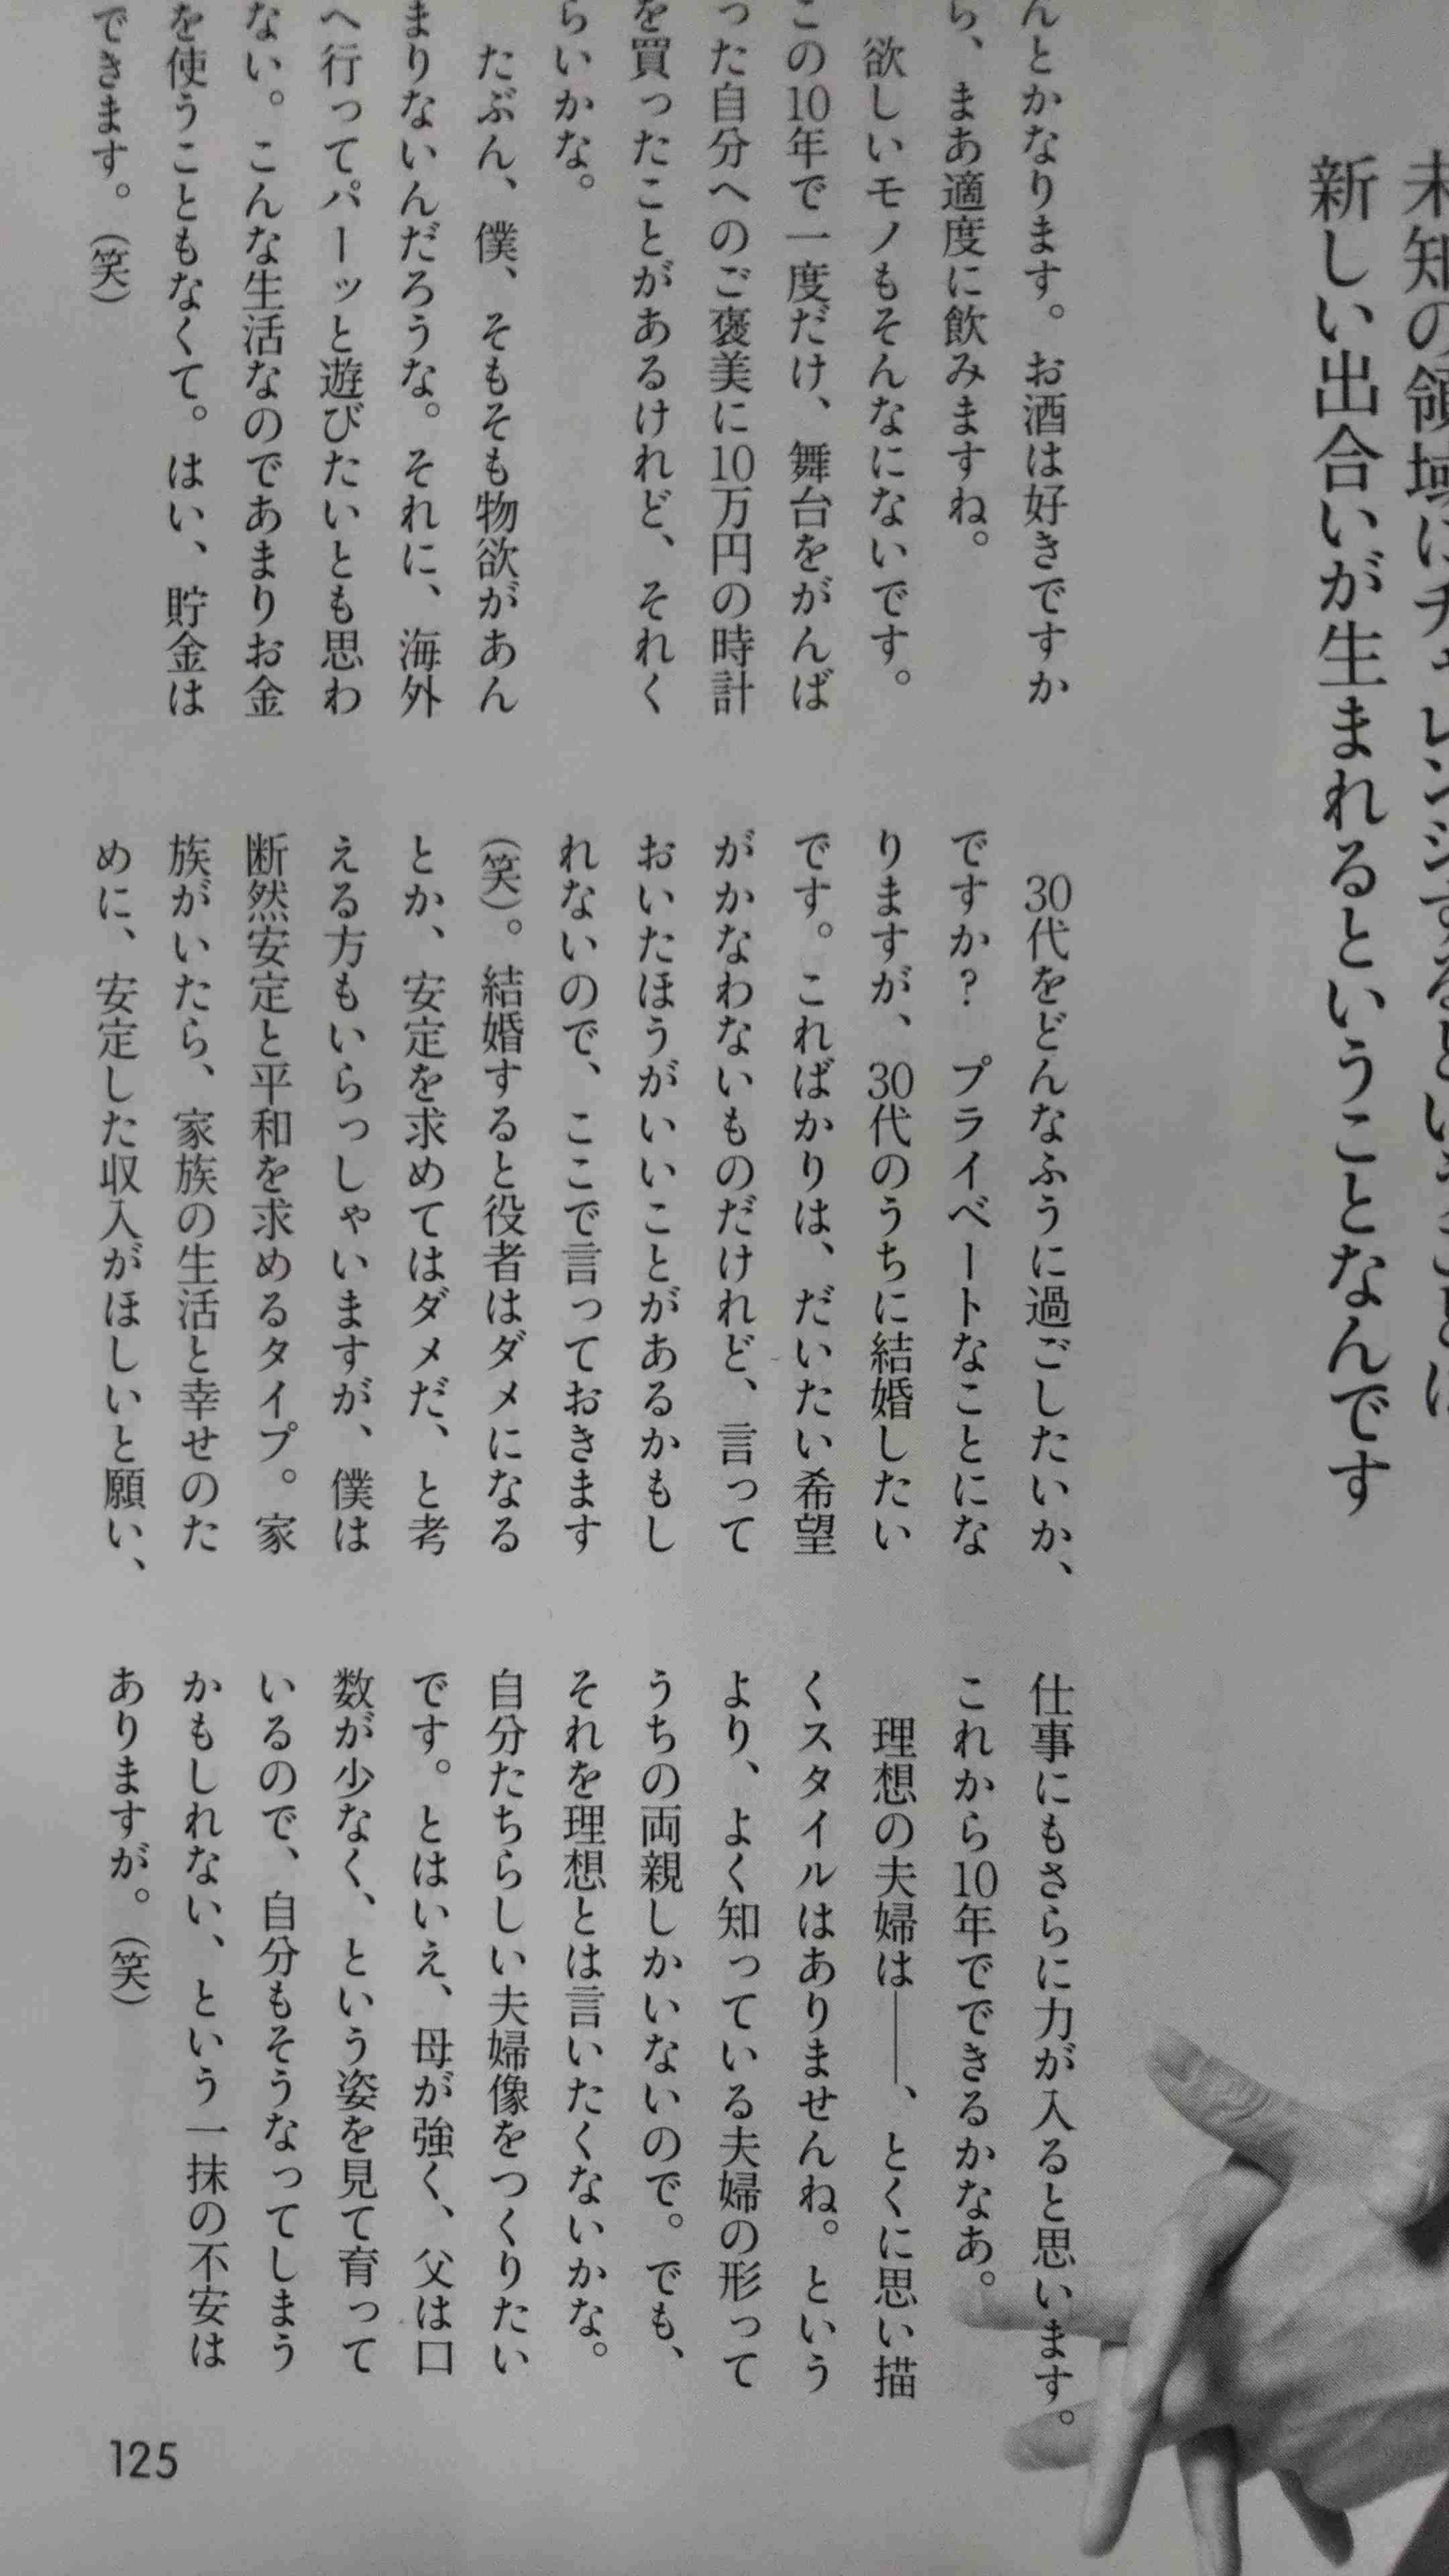 未知の領域にチャレンジするということは
新しい出合いが生まれるということなんです
んとかなります。お酒は好きですか
ら、まあ適度に飲みますね。
欲しいモノもそんなにないです。
この10年で一度だけ、舞台をがんば
った自分へのご褒美に10万円の時計
を買ったことがあるけれど、それく
らいかな。
たぶん、僕、そもそも物欲があん
まりないんだろうな。それに、海外
へ行ってパーッと遊びたいとも思わ
ない。こんな生活なのであまりお金
を使うこともなくて。はい、貯金は
できます。（笑）
30代をどんなふうに過ごしたいか、
ですか？ プライベートなことにな
りますが、30代のうちに結婚したい
です。こればかりは、だいたい希望
がかなわないものだけれど、言って
おいたほうがいいことがあるかもし
れないので、ここで言っておきます
（笑）。結婚すると役者はダメになる
とか、安定を求めてはダメだ、と考
える方もいらっしゃいますが、僕は
断然安定と平和を求めるタイプ。家
族がいたら、家族の生活と幸せのた
めに、安定した収入がほしいと願い、
仕事にもさらに力が入ると思います。
これから10年でできるかなあ。
理想の夫婦は――、とくに思い描
くスタイルはありませんね。という
より、よく知っている夫婦の形って
うちの両親しかいないので。でも、
それを理想とは言いたくないかな。
自分たちらしい夫婦像をつくりたい
です。とはいえ、母が強く、父は口
数が少なく、という姿を見て育って
いるので、自分もそうなってしまう
かもしれない、という一抹の不安は
ありますが。（笑）
125